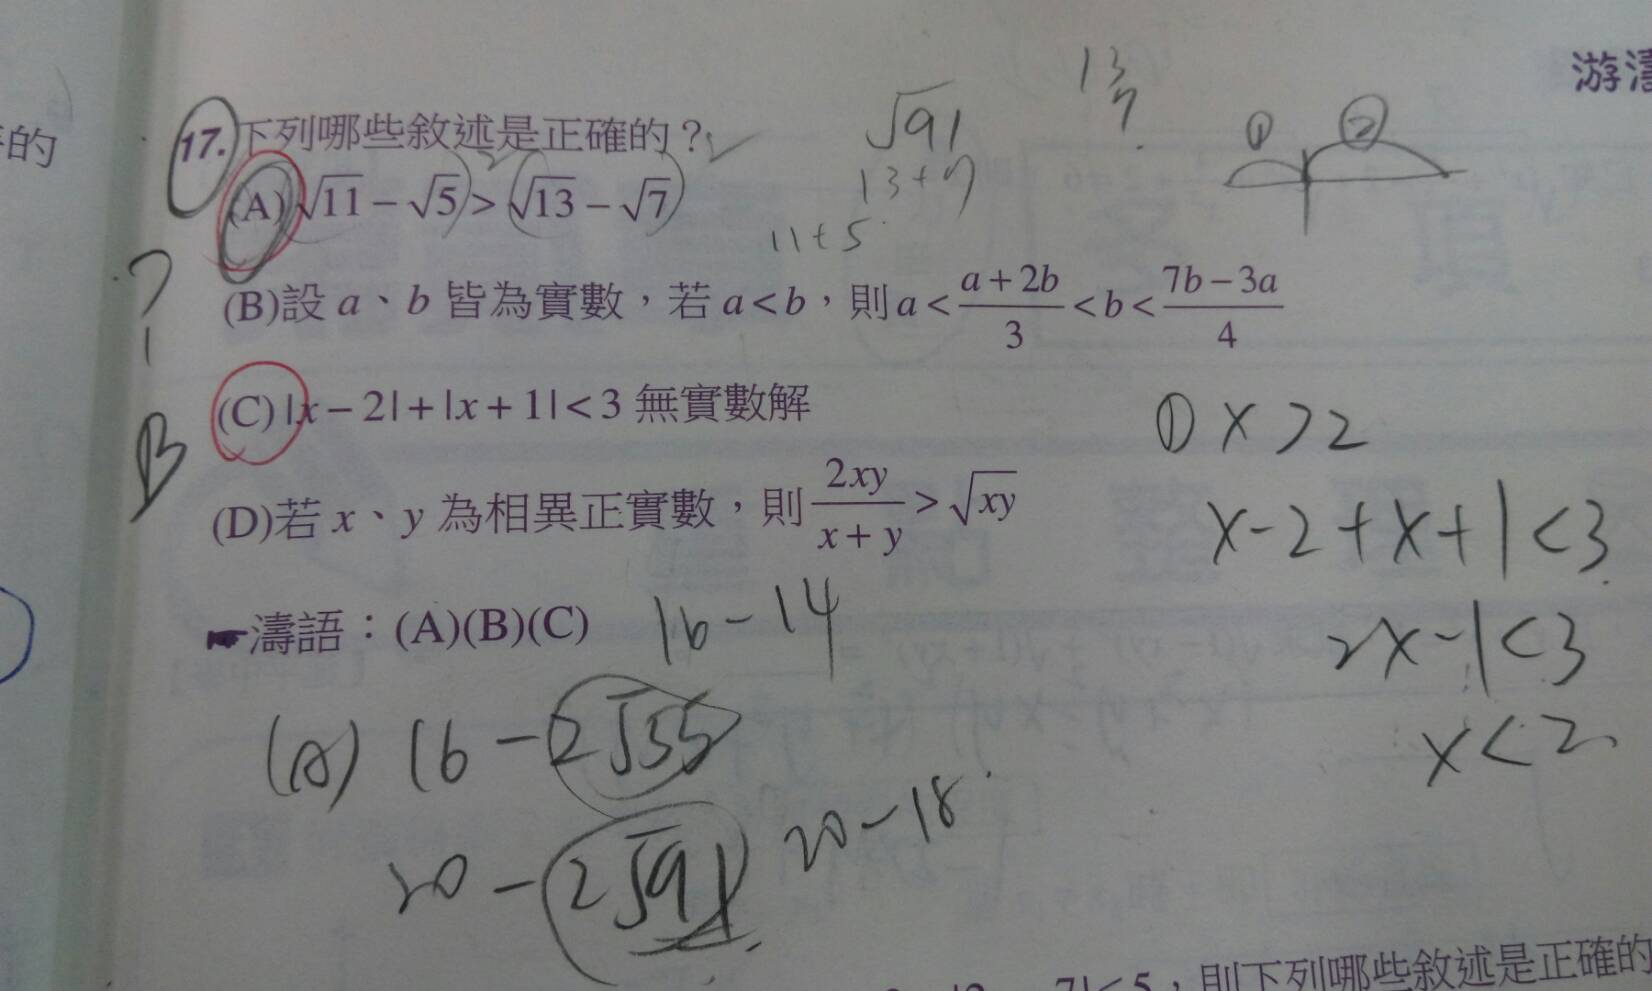 游濤
的
17. 下列哪些敘述是正確的？
√91
13
7
①
②
(A) √11 − √5 > √13 − √7
13+7
11+5
?
(B)設 a、b 皆為實數，若 a < b，則 a < (a + 2b)/3 < b < (7b − 3a)/4
(C) |x − 2| + |x + 1| < 3 無實數解
① x > 2
B
(D)若 x、y 為相異正實數，則 2xy/(x + y) > √xy
x-2+x+1<3
☛濤語：(A)(B)(C)
16-14
2x-1<3
(A) 16-2√55
x<2
20-2√91
20-18
7|<5，則下列哪些敘述是正確的